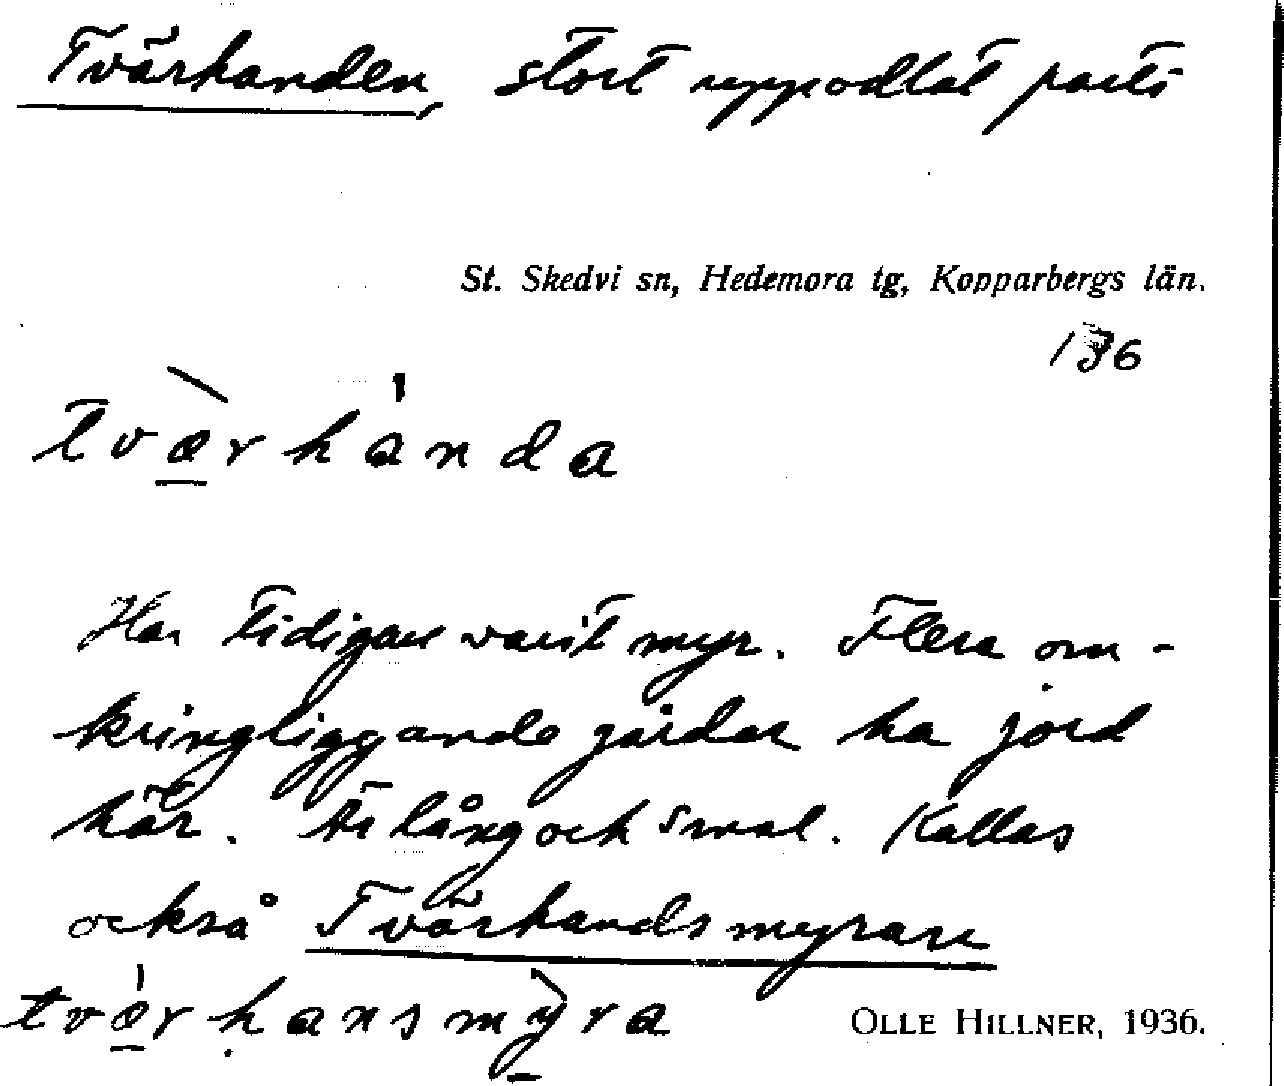 Tvärhanden, stort uppodlat parti
St. Skedvi sn, Hedemora tg, Kopparbergs län.
136
tværhanda
Har tidigare varit myr. Flera om-
kringliggande gårdar ha jord
här. Är lång och smal. Kallas
också Tvärhandsmyran
tværhansmyra
OLLE HILLNER, 1936.